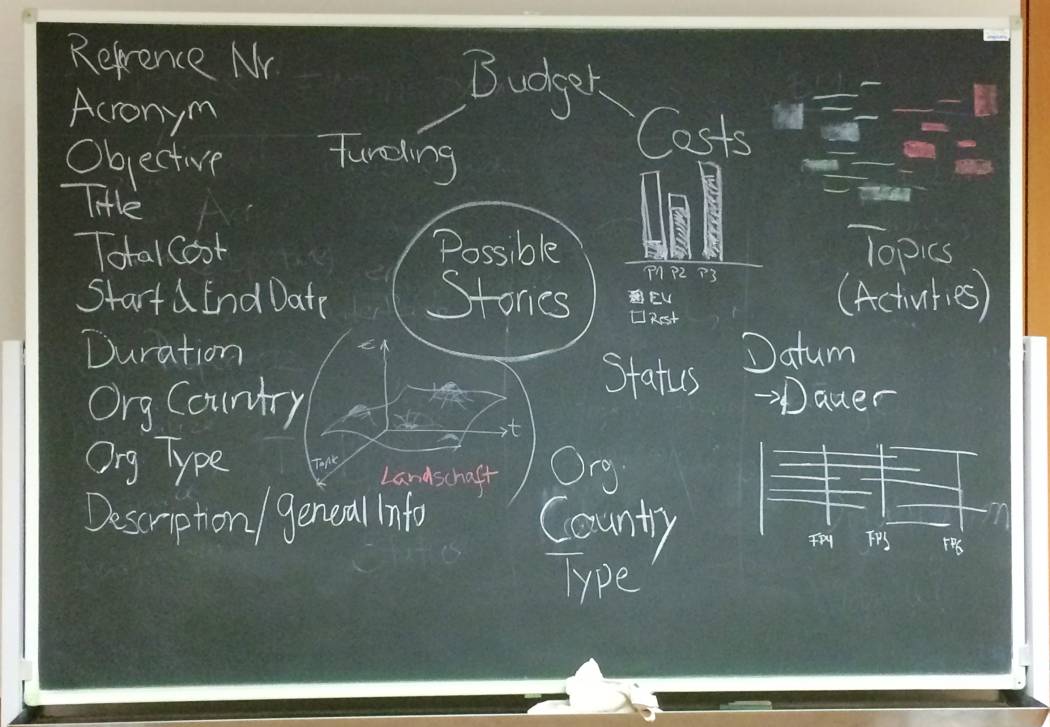 Refrence Nr.
Acronym
Objective
Title
Total Cost
Start & End Date
Duration
Org Country
Org Type
Description / general Info
Budget
Funding
Costs
P1 P2 P3
EU
Rest
Possible
Stories
€
t
Topic
Landschaft
Status
Org
Country
Type
Topics
(Activities)
Datum
→Dauer
FP4 FP5 FP6